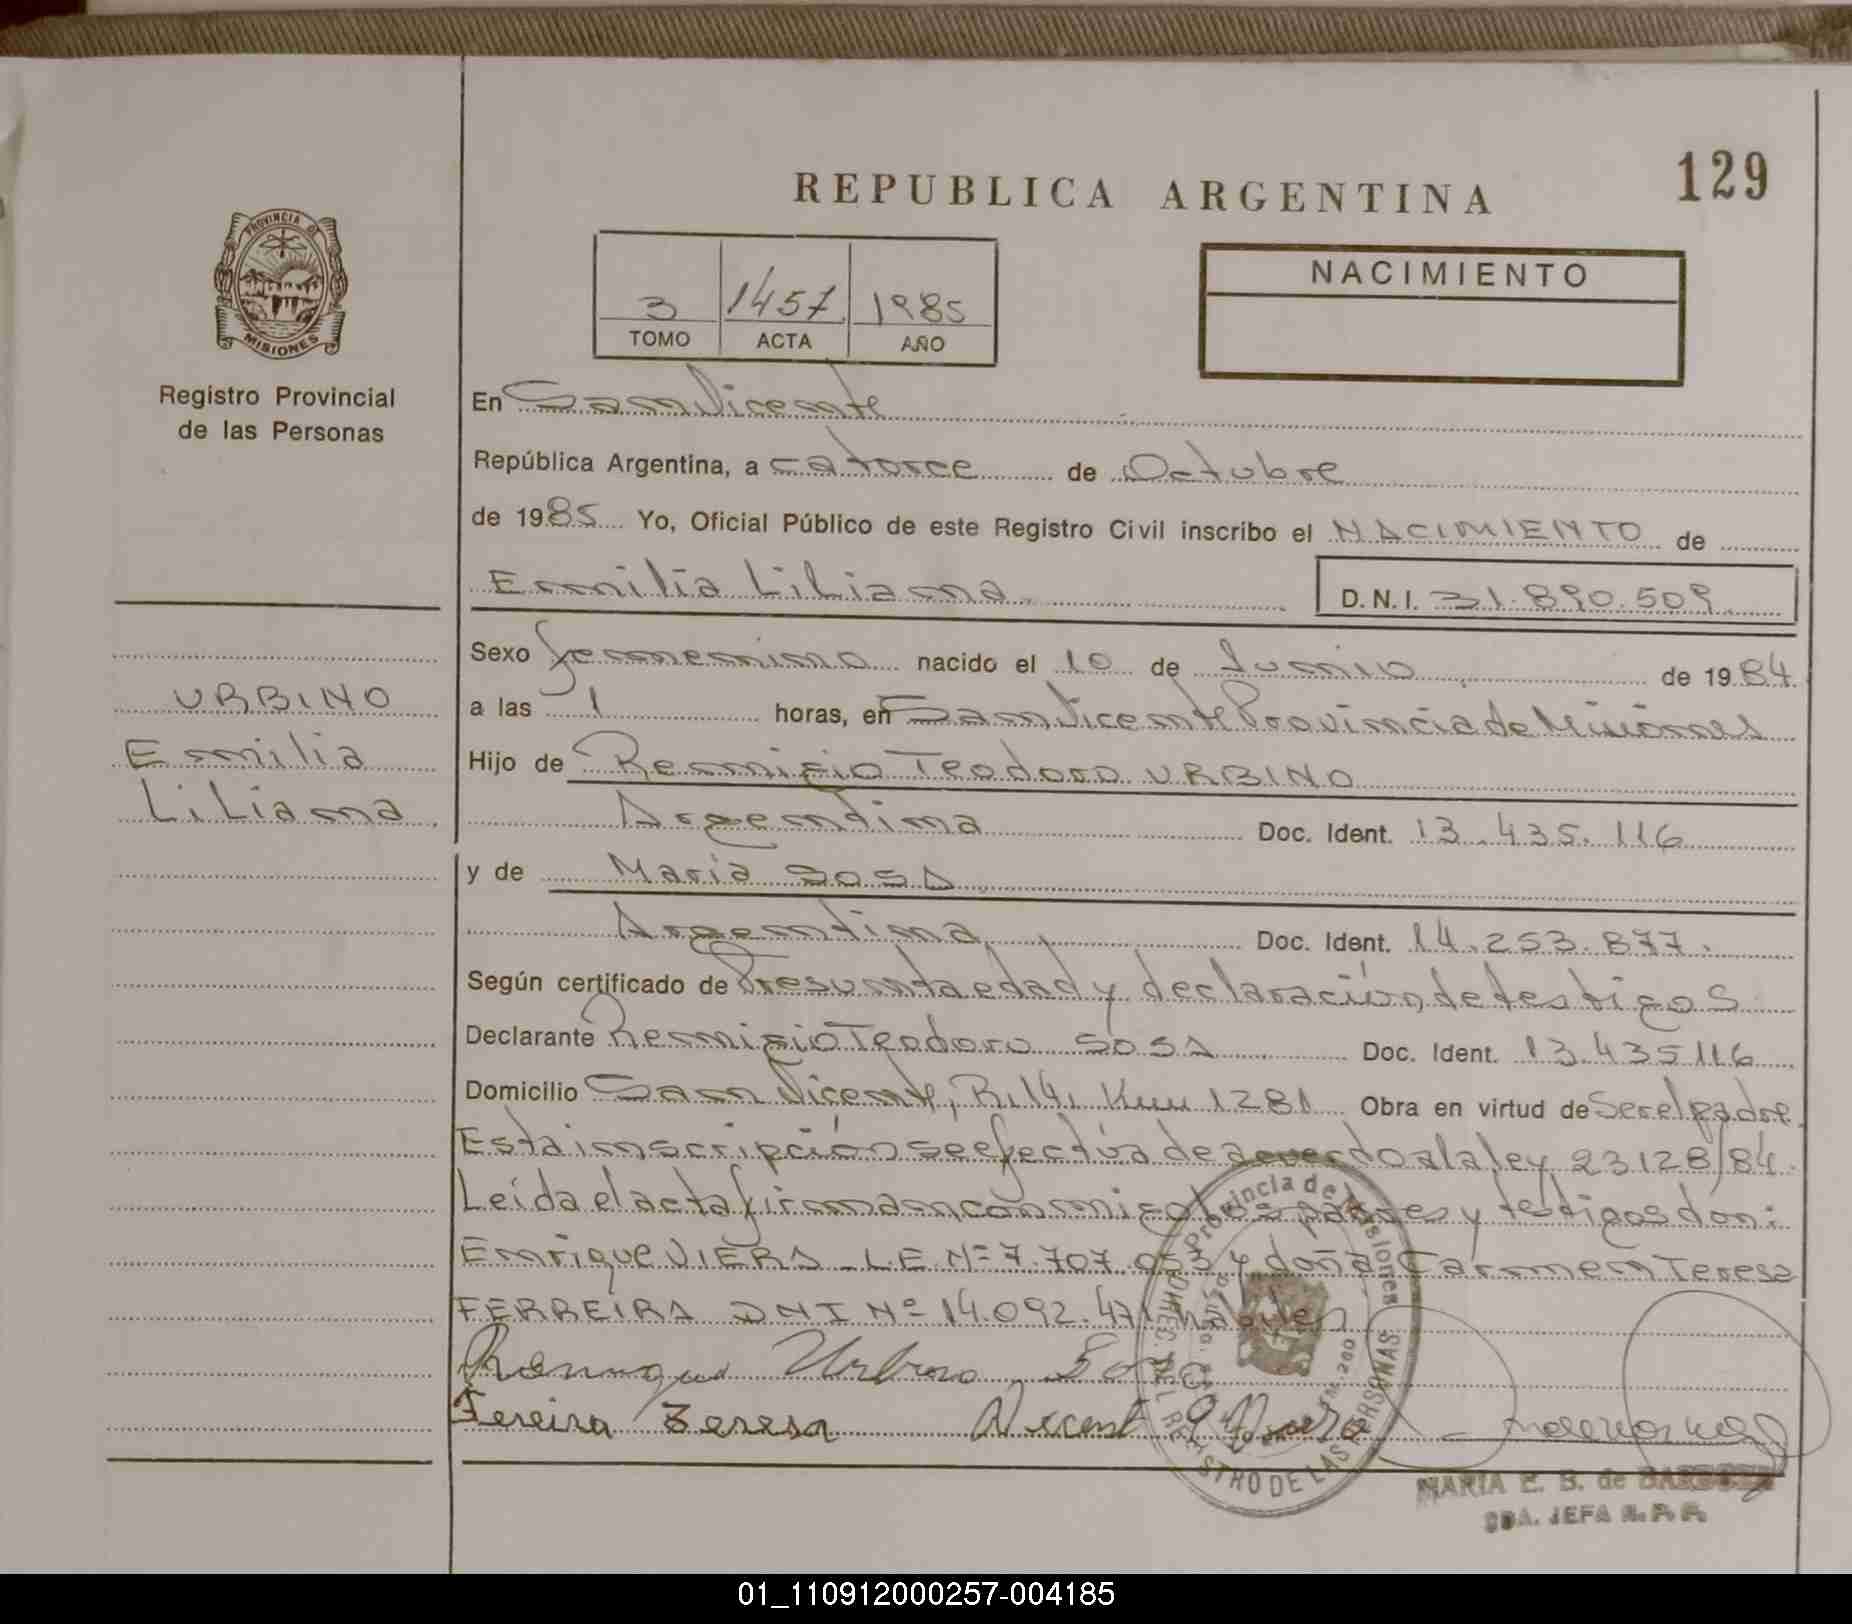 129
REPUBLICA ARGENTINA
PROVINCIA DE
MISIONES
Registro Provincial
de las Personas
3 1457 1985
TOMO ACTA AÑO
NACIMIENTO
En San Vicente
República Argentina, a catorce de Octubre
de 1985 Yo, Oficial Público de este Registro Civil inscribo el NACIMIENTO de
Emilia Liliana D.N.I. 31.890.509
Sexo femenino nacido el 10 de Junio de 1984
URBINO
Emilia
Liliana
a las 1 horas, en San Vicente Provincia de Misiones
Hijo de Remigio Teodoro URBINO
Argentina Doc. Ident. 13.435.116
y de Maria SOSA
Argentina Doc. Ident. 14.253.877.
Según certificado de Presunta edad y declaración, de testigos
Declarante Remigio Teodoro SOSA Doc. Ident. 13.435116
Domicilio San Vicente, R.14, Km 1281 Obra en virtud de Ser el padre.
Esta inscripción se efectúa de acuerdo a la ley 23128/84.
Leída el acta firman conmigo los padres y testigos don:
Enrique VIERA - L E Nº 7.707.053 y doña Carmen Teresa
FERREIRA DNI Nº 14.092.471 hábiles
Urbino
Fereira Teresa
Provincia de Misiones
DEL REGISTRO DE LAS PERSONAS
MARIA E. B. de
JEFA R. P. P.
01_110912000257-004185